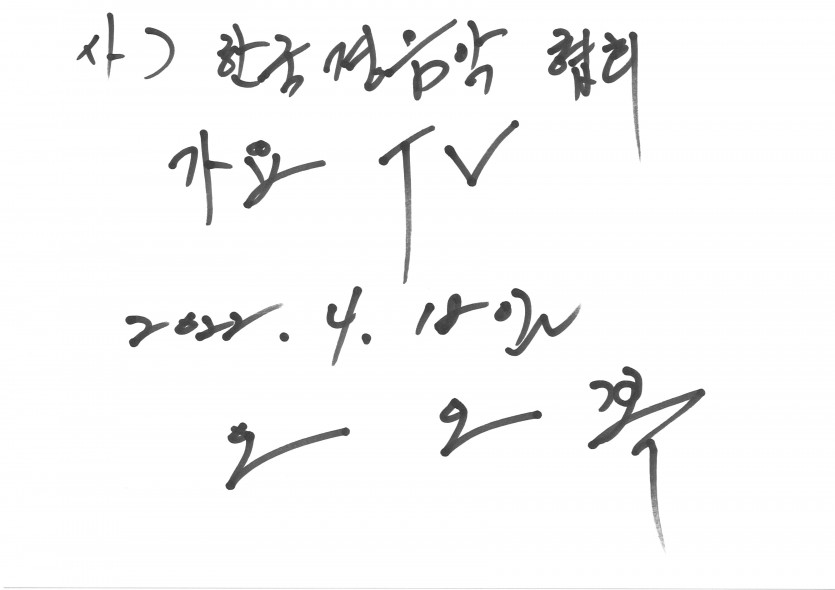 사) 한국경음악 협회
가요 TV
2022. 4. 18일